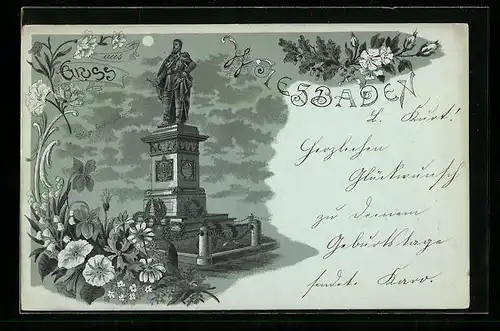 Gruss
aus
WIESBADEN
L. Kurt!
Herzlichen
Glückwunsch
zu Deinem
Geburtstage
sendet.